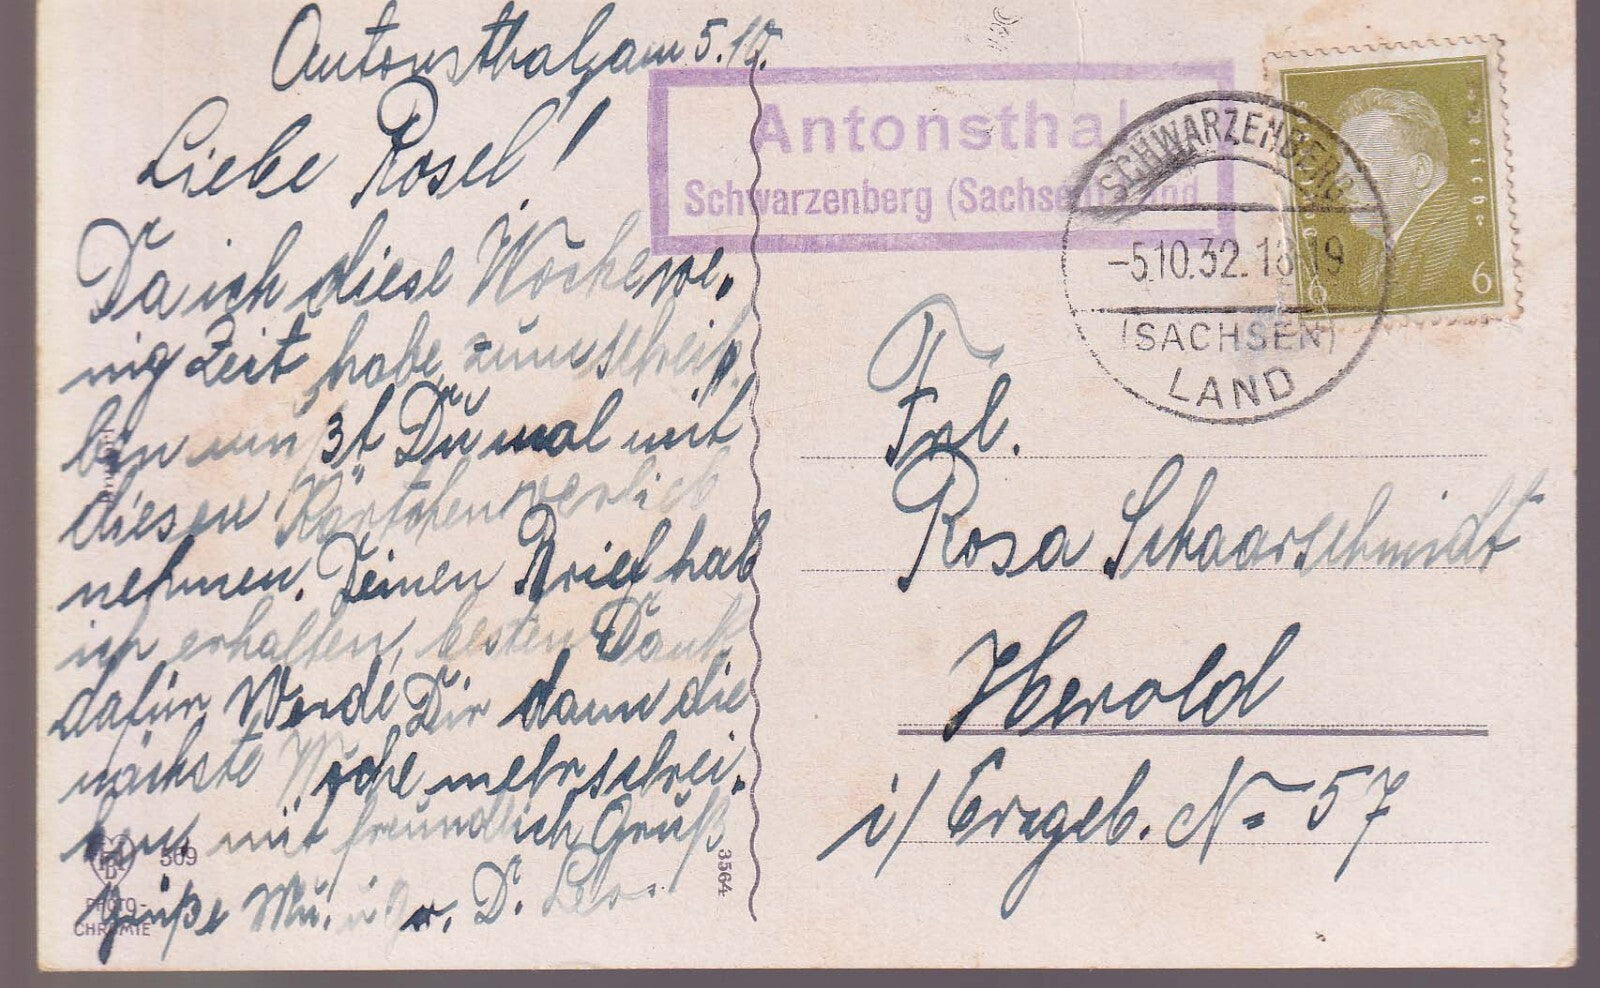 Antonsthal, am 5.10.
Liebe Rosel!
Da ich diese Woche we-
nig Zeit habe, zum schrei-
ben um
3t Du mal mit
diesen Kärtchen vorlieb
nehmen. Deinen Brief hab
ich erhalten, besten Dank
dafür Werde Dir dann die
nächste Woche mehr schrei-
ben, mit freundlich Gruß
Grüße Mu. u gr. D.
Antonsthal
Schwarzenberg (Sachsen) Land
SCHWARZENBERG
-5.10.32.18-19
(SACHSEN)
LAND
Deutsches Reich
6 6
Frl.
Rosa Schaarschmidt
Herold
i/ Erzgeb. No 57
369
PHOTO-
CHROMIE
3564